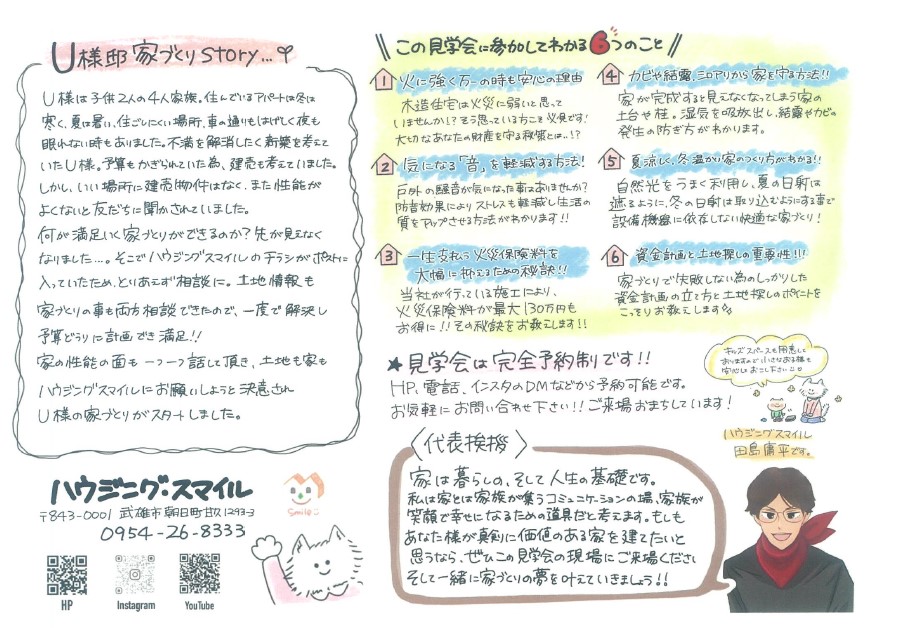 U様邸 家づくりStory...
U様は子供2人の4人家族。住んでいるアパートは冬は
寒く、夏は暑い、住ごしにくい場所、車の通りもはげしく夜も
眠れない時もありました。不満を解消したく新築を考えて
いたU様。予算もかぎられていた為、建売も考えていました。
しかし、いい場所に建売物件はなく、また性能が
よくないと友だちに聞かされていました。
何が満足いく家づくりができるのか?先が見えなく
なりました...。そこでハウジングスマイルのチラシがポストに
入っていたため、とりあえず相談に。土地情報も
家づくりの事も両方相談できたので、一度で解決し
予算どうりに計画でき満足!!
家の性能の面も一つ一つ話して頂き、土地も家も
ハウジングスマイルにお願いしようと決意され
U様の家づくりがスタートしました。
ハウジング・スマイル
〒843-0001 武雄市朝日町甘久1293-3
0954-26-8333
Smile
HP
Instagram
YouTube
この見学会に参加してわかる6つのこと
1 火に強く万一の時も安心の理由
木造住宅は火災に弱いと思って
いませんか!?そう思っている方こと必見です!
大切なあなたの財産を守る秘策とは..!?
2 気になる「音」を軽減する方法!
戸外の騒音が気になった事はありませんか?
防音効果によりストレスも軽減し生活の
質をアップさせる方法がわかります!!
3 一生支払う火災保険料を
大幅に抑えるための秘訣!!
当社が行っている施工により、
火災保険料が最大130万円も
お得に!!その秘訣をお教えします!!
4 カビや結露、シロアリから家を守る方法!!
家が完成すると見えなくなってしまう家の
土台や柱。湿気を吸放出し、結露やカビの
発生の防ぎ方がわかります。
5 夏涼しく、冬温かい家のつくり方がわかる!!
自然光をうまく利用し、夏の日射は
遮るように、冬の日射は取り込むようにする事で
設備機器に依存しない快適な家づくり!
6 資金計画と土地探しの重要性!!!
家づくりで失敗しない為のしっかりした
資金計画の立て方と土地探しのポイントを
こっそりお教えします
★見学会は完全予約制です!!
HP、電話、インスタのDMなどから予約可能です。
お気軽にお問い合わせ下さい!!ご来場おまちしています!
キッズスペースも用意して
おりますので小さなお子様も
安心してお こし下さい
ハウジングスマイル
田島庸平です。
〈代表挨拶〉
家は暮らしの、そして人生の基礎です。
私は家とは家族が集うコミュニケーションの場、家族が
笑顔で幸せになるための道具だと考えます。もしも
あなた様が真剣に価値のある家を建てたいと
思うなら、ぜひこの見学会の現場にご来場ください
そして一緒に家づくりの夢を叶えていきましょう!!